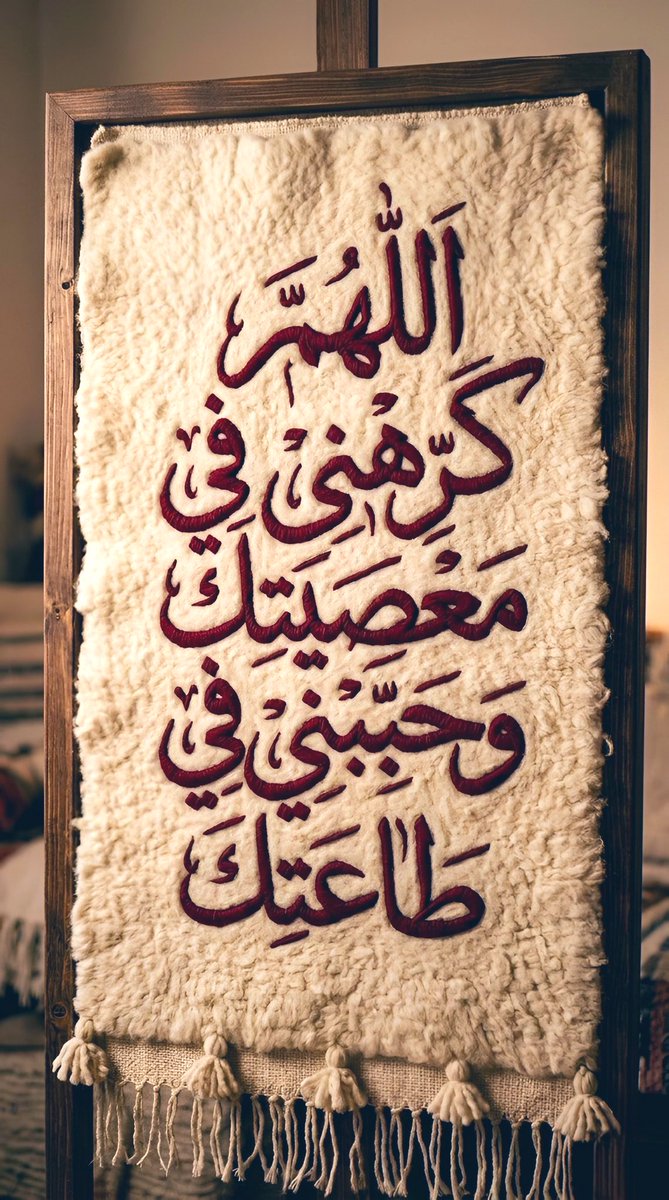 اَللّٰهُمَّ
كَرِّهْنِي فِي
مَعْصِيَتِكَ
وَحَبِّبْنِي فِي
طَاعَتِكَ